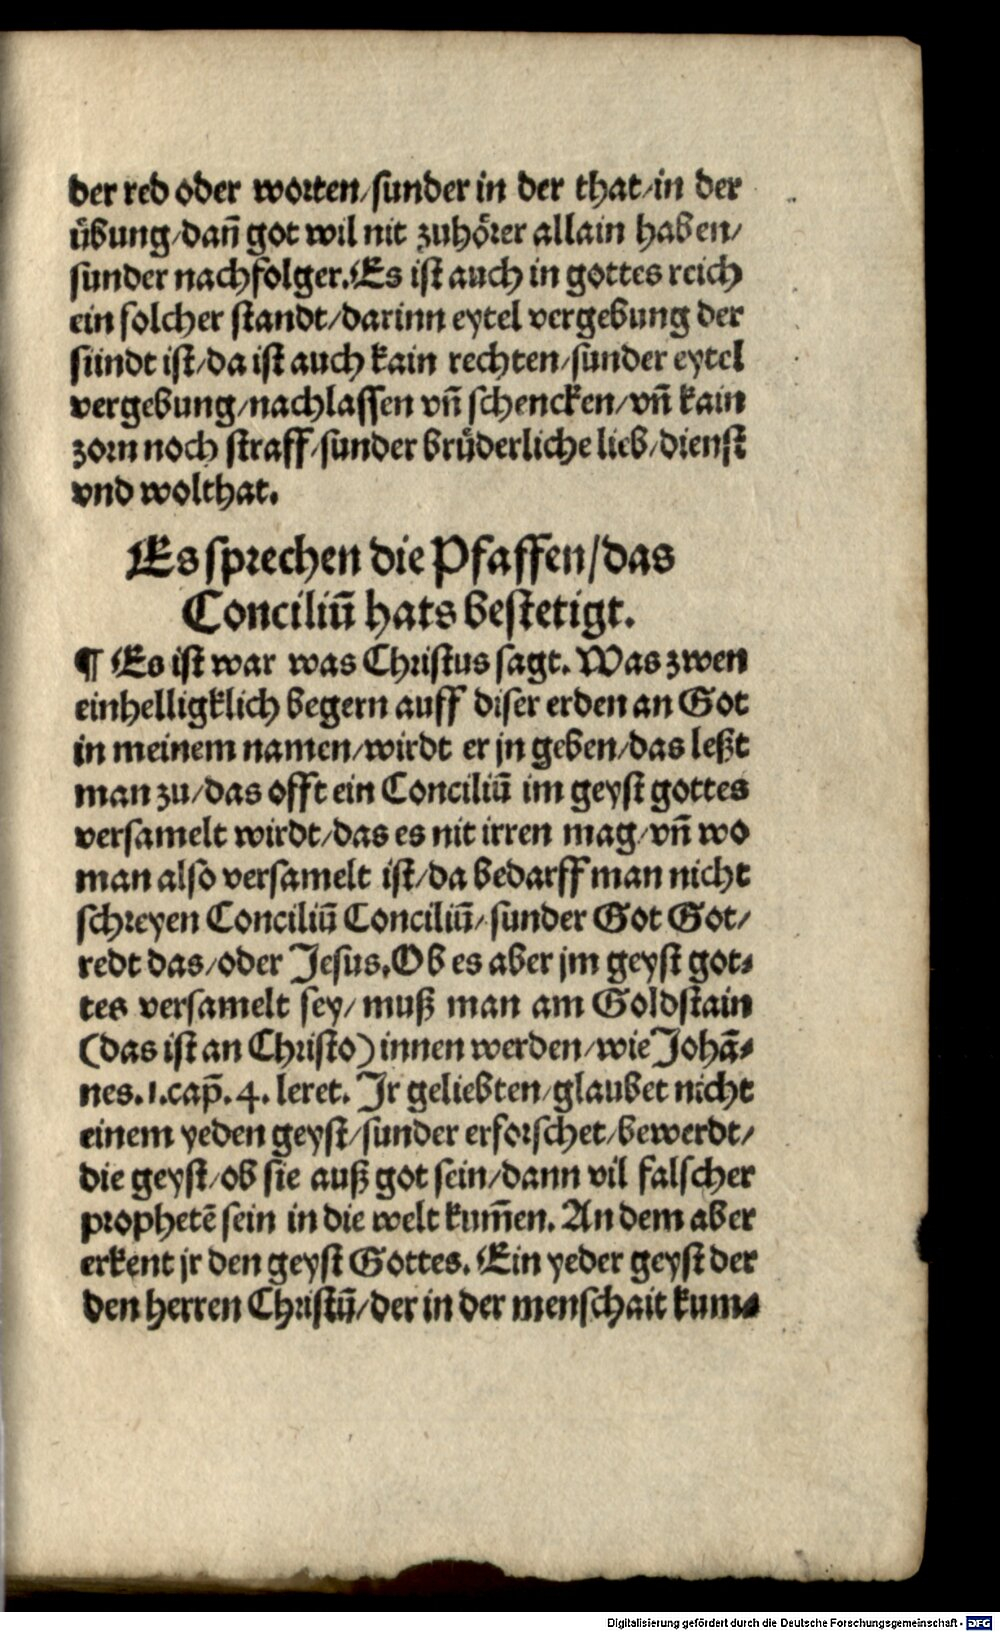 der red oder worten/sunder in der that/in der
uͤbung/dañ got wil nit zuhoͤrer allain haben/
sunder nachfolger. Es ist auch in gottes reich
ein solcher standt/darinn eytel vergebung der
sündt ist/da ist auch kain rechten/sunder eytel
vergebung/nachlassen vñ schencken/vñ kain
zorn noch straff/sunder bruͤderliche lieb/dienst
vnd wolthat.
Es sprechen die Pfaffen/das
Conciliū hats bestetigt.
¶ Es ist war was Christus sagt. Was zwen
einhelligklich begern auff diser erden an Got
in meinem namen/wirdt er jn geben/das leßt
man zu/das offt ein Conciliū im geyst gottes
versamelt wirdt/das es nit irren mag/vñ wo
man also versamelt ist/da bedarff man nicht
schreyen Conciliū Conciliū/sunder Got Got/
redt das/oder Jesus. Ob es aber jm geyst got⸗
tes versamelt sey/muß man am Goldstain
(das ist an Christo) innen werden/wie Johā⸗
nes.1.cap̄.4. leret. Jr geliebten/glaubet nicht
einem yeden geyst/sunder erforschet/bewerdt/
die geyst/ob sie auß got sein/dann vil falscher
prophetē sein in die welt kum̄en. An dem aber
erkent jr den geyst Gottes. Ein yeder geyst der
den herren Christū/der in der menschait kum⸗
Digitalisierung gefördert durch die Deutsche Forschungsgemeinschaft - DFG